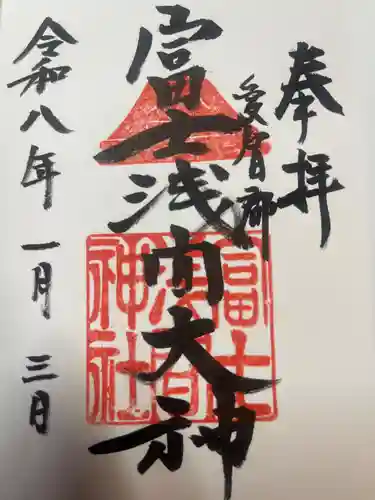 奉拝
愛宕郡
冨士浅間大神
冨士
浅間
神社
令和八年一月三日